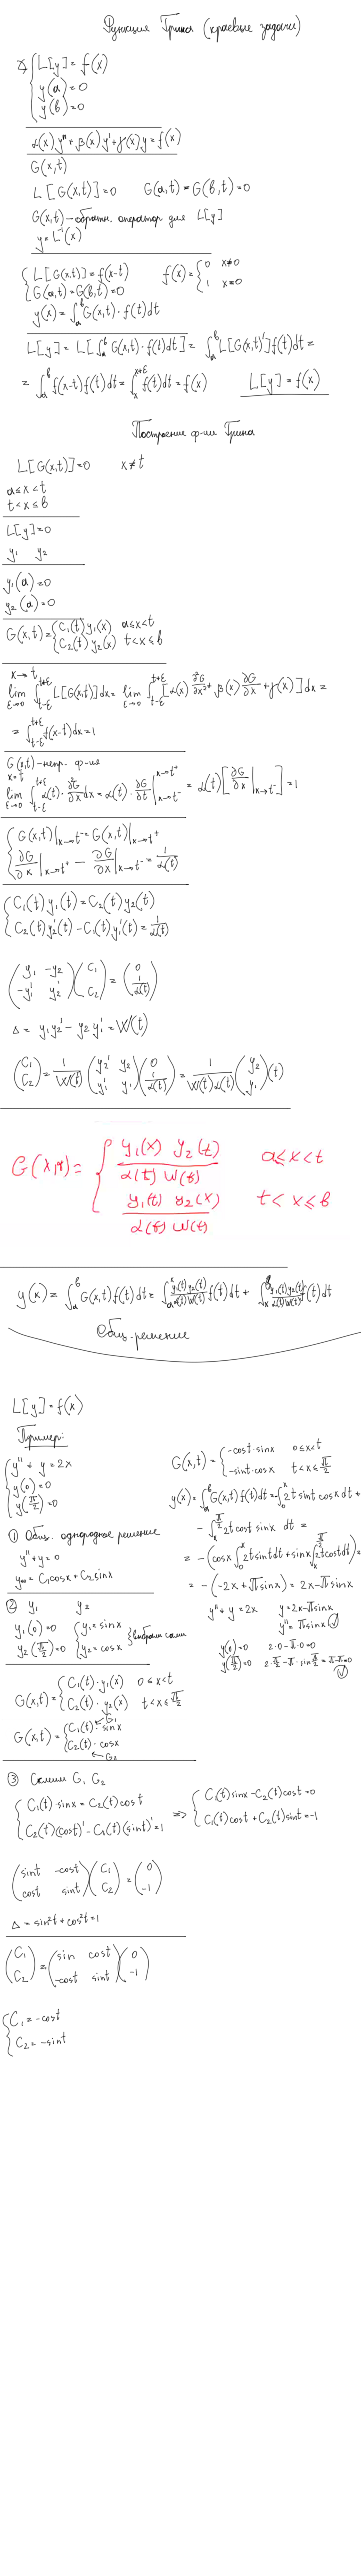 Функция Грина (краевые задачи)
∡ { L[y] = f(x)
y(a) = 0
y(b) = 0
α(x) y'' + β(x) y' + γ(x) y = f(x)
G(x,t)
L[G(x,t)] = 0   G(a,t) = G(b,t) = 0
G(x,t) – обратн. оператор для L[y]
y = L⁻¹(x)
{ L[G(x,t)] = f(x-t)   f(x) = { 0 x≠0
G(a,t) = G(b,t) = 0   1 x=0
y(x) = ∫ₐᵇ G(x,t) · f(t) dt
L[y] = L[∫ₐᵇ G(x,t) · f(t) dt] = ∫ₐᵇ L[G(x,t)'] f(t) dt =
= ∫ₐᵇ f(x-t) f(t) dt = ∫ₓˣ⁺ᵋ f(t) dt = f(x)   L[y] = f(x)
Построение ф-ии Грина
L[G(x,t)] = 0   x ≠ t
a ≤ x < t
t < x ≤ b
L[y] = 0
y₁   y₂
y₁(a) = 0
y₂(a) = 0
G(x,t) = { C₁(t) y₁(x)   a ≤ x < t
C₂(t) y₂(x)   t < x ≤ b
x → t
lim ε→0 ∫ t-ε t+ε L[G(x,t)] dx = lim ε→0 ∫ t-ε t+ε [α(x) ∂²G/∂x² + β(x) ∂G/∂x + γ(x)] dx =
= ∫ t-ε t+ε f(x-t) dx = 1
G(x,t) – непр. ф-ия
x = t
lim ε→0 ∫ t-ε t+ε α(t) · ∂²G/∂x² dx = α(t) · ∂G/∂t | x→t⁺ x→t⁻ = α(t) [∂G/∂x | x→t⁺ x→t⁻] = 1
{ G(x,t)| x→t⁻ = G(x,t)| x→t⁺
∂G/∂x | x→t⁺ − ∂G/∂x | x→t⁻ = 1/α(t)
{ C₁(t) y₁(t) = C₂(t) y₂(t)
C₂(t) y₂'(t) − C₁(t) y₁'(t) = 1/α(t)
( y₁ -y₂ ; -y₁' y₂' ) ( C₁ ; C₂ ) = ( 0 ; 1/α(t) )
Δ = y₁ y₂' − y₂ y₁' = W(t)
( C₁ ; C₂ ) = 1/W(t) ( y₂' y₂ ; y₁' y₁ ) ( 0 ; 1/α(t) ) = 1/(W(t) α(t)) ( y₂ ; y₁ ) (t)
G(x,y) = { y₁(x) y₂(t) / α(t) W(t)   a ≤ x < t
y₁(t) y₂(x) / α(t) W(t)   t < x ≤ b
y(x) = ∫ₐᵇ G(x,t) f(t) dt = ∫ₐˣ y₁(t) y₂(t) / α(t) W(t) f(t) dt + ∫ₓᵇ y₁(t) y₂(t) / α(t) W(t) f(t) dt
Общ. решение
L[y] = f(x)
Пример:
{ y'' + y = 2x
y(0) = 0
y(π/2) = 0
① Общ. однородное решение
y'' + y = 0
y₀₀ = C₁ cos x + C₂ sin x
② y₁   y₂
y₁(0) = 0   { y₁ = sin x
y₂(π/2) = 0   y₂ = cos x } выбрали сами
G(x,t) = { C₁(t) · y₁(x)   0 ≤ x < t
C₂(t) · y₂(x)   t < x ≤ π/2
G(x,t) = { C₁(t) · sin x ← G₁
C₂(t) · cos x ← G₂
③ Склеим G₁ G₂
{ C₁(t) · sin x = C₂(t) cos t   ⇒ { C₁(t) sin x − C₂(t) cos t = 0
C₂(t)(cos t)' − C₁(t)(sin t)' = 1   C₁(t) cos t + C₂(t) sin t = -1
( sin t -cos t ; cos t sin t ) ( C₁ ; C₂ ) = ( 0 ; -1 )
Δ = sin² t + cos² t = 1
( C₁ ; C₂ ) = ( sin cos t ; -cos t sin t ) ( 0 ; -1 )
{ C₁ = -cos t
C₂ = -sin t
G(x,t) = { -cos t · sin x   0 ≤ x < t
-sin t · cos x   t < x ≤ π/2
y(x) = ∫ₐᵇ G(x,t) f(t) dt = -∫₀ˣ 2t sin t cos x dt +
− ∫ₓ^(π/2) 2t cos t sin x dt =
= − (cos x ∫₀ˣ 2t sin t dt + sin x ∫ₓ^(π/2) 2t cos t dt) =
= − (-2x + π sin x) = 2x − π sin x
y'' + y = 2x   y = 2x − π sin x
y'' = π sin x ✓
y(0) = 0   2·0 − π·0 = 0
y(π/2) = 0   2·π/2 − π · sin π/2 = π − π = 0 ✓